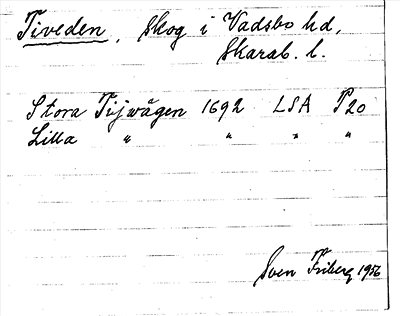 Tiveden, Skog i Vadsbo hd,
Skarab. l.
Stora Tijwägen 1692 LSA P20
Lilla " " " "
Sven Friberg 1956